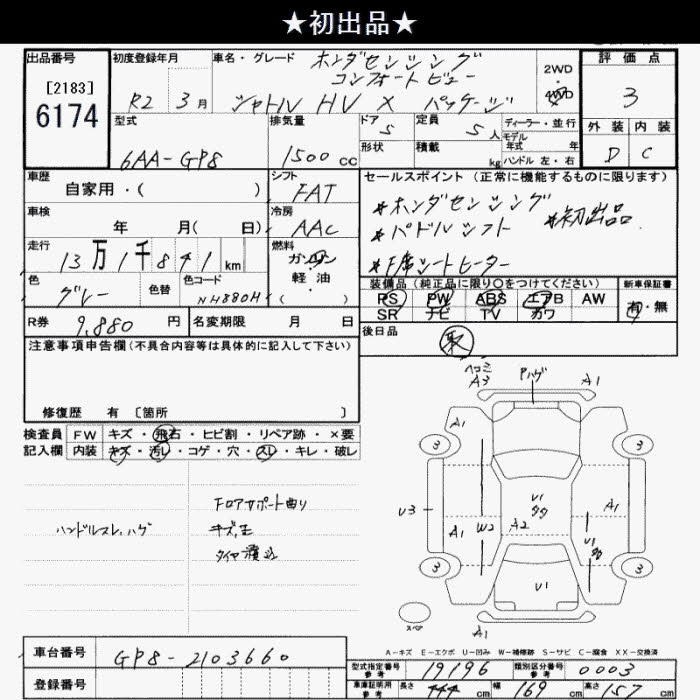 ★初出品★
出品番号
[2183]
6174
初度登録年月
R2 3月
車名・グレード
ホンダセンシング
コンフォートビュー
シャトル HV X パッケージ
2WD
4WD
評価点
3
外装 内装
D C
型式
6AA-GP8
排気量
1500cc
ドア 5
形状
定員 5人
積載 kg
ディーラー・並行
モデル
年式 年
ハンドル 左・右
車歴
自家用・( )
シフト
FAT
セールスポイント (正常に機能するものに限ります)
*ホンダセンシング
*パドルシフト *初出品
*F席シートヒーター
車検
年 月( 日)
冷房
AAC
走行
13万1千841km
燃料
ガソリン
軽・油
( )
色
グレー
色替
色コード
NH880M
装備品 (純正品に限り○をつけてください)
PS PW ABS エアB AW
SR ナビ TV カワ
新車保証書
有・無
R券 9.880円
名変期限 月 日
後日品
取
注意事項申告欄(不具合内容等は具体的に記入して下さい)
修復歴 有 〔箇所 〕
検査員 FW キズ・飛石・ヒビ割・リペア跡・×要
記入欄 内装 キズ・汚レ・コゲ・穴・スレ・キレ・破レ
ハンドルスレ、ハゲ
フロアサポート曲り
キズ、
タイヤ溝
ヘコミ
A3
Pハゲ
A1
A1
3
3
U3
A1
W2
A2
U1
A1
U1
3
3
U1
スペア
A1
A-キズ E-エクボ U-凹み W-補修跡 S-サビ C-腐食 XX-交換済
車台番号 GP8-2103660
登録番号
型式指定番号
参考
19196
類別区分番号
参考
0003
車庫証明用
参考
長さ 444cm 幅 169cm 高さ 157cm